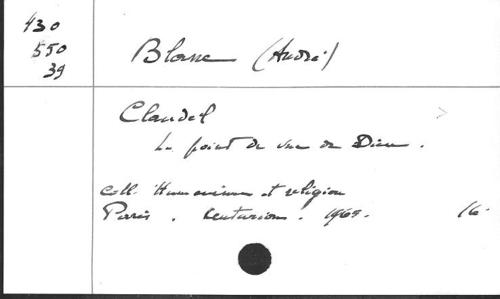 430
550
39
Blanc (André)
Claudel
Le point de vue de Dieu.
Coll. Humanisme et religion
Paris. Centurion. 1965. 16.